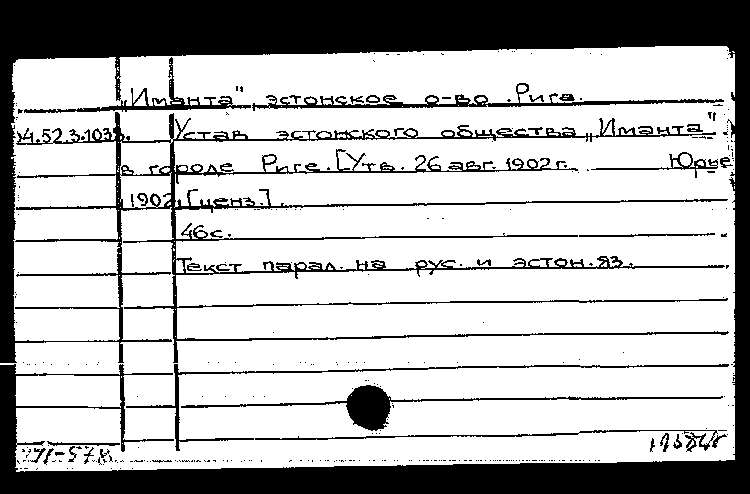 „Иманта", эстонское о-во. Рига.
Устав эстонского общества „Иманта"
в городе Риге. [Утв. 26 авг. 1902 г. Юрье
1902, [ценз.].
46с.
Текст парал. на рус. и эстон. яз.